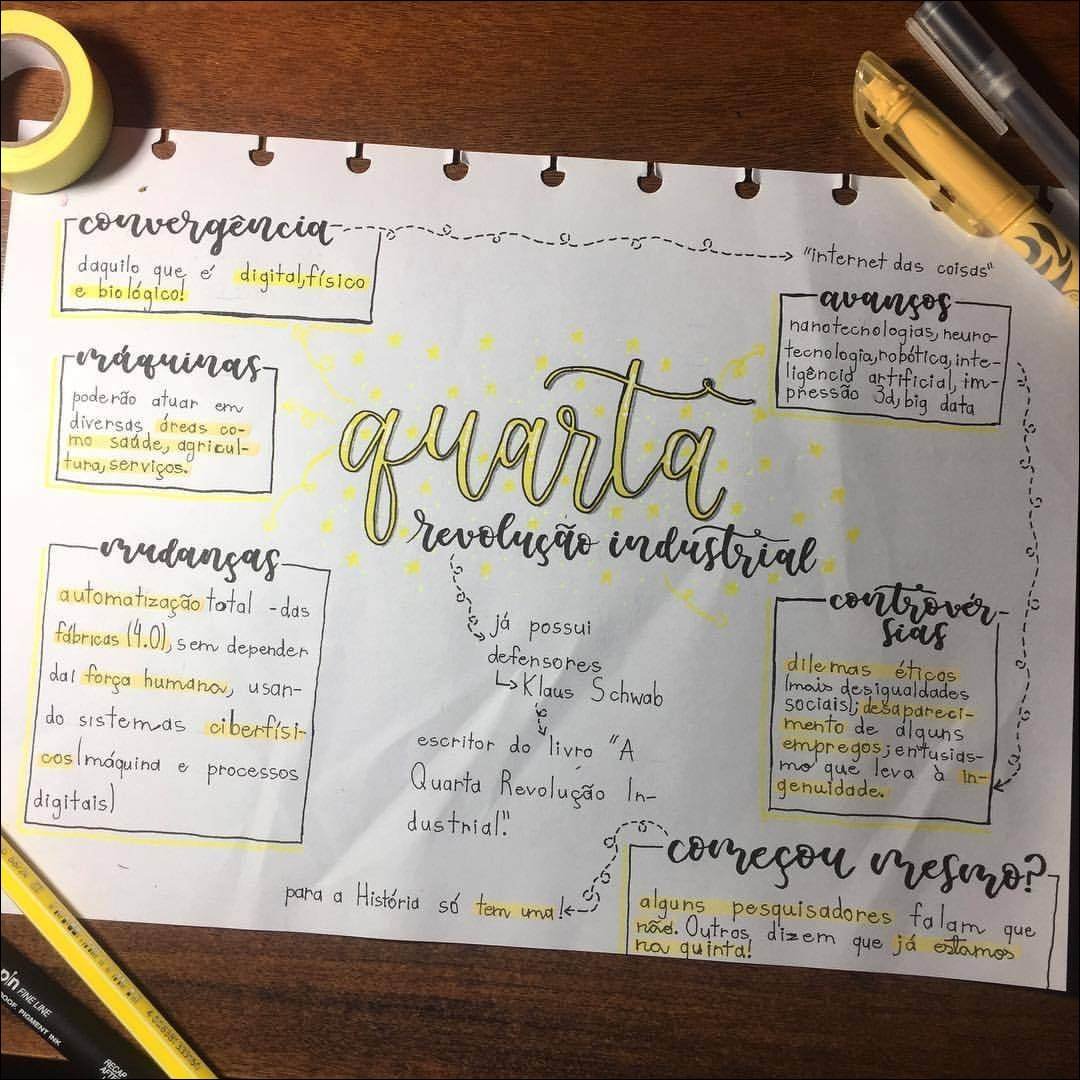 convergência
daquilo que é digital, físico
e biológico!
"internet das coisas"
avanços
nanotecnologias, neuro-
tecnologia, robótica, inte-
ligência artificial, im-
pressão 3d, big data
máquinas
poderão atuar em
diversas áreas co-
mo saúde, agricul-
tura, serviços.
quarta
revolução industrial
mudanças
automatização total - das
fábricas (4.0), sem depender
da força humana, usan-
do sistemas ciberfísi-
cos (máquina e processos
digitais)
já possui
defensores
Klaus Schwab
escritor do livro "A
Quarta Revolução In-
dustrial."
controvér-
sias
dilemas éticos
(mais desigualdades
sociais); desapareci-
mento de alguns
empregos; entusias-
mo que leva à in-
genuidade.
começou mesmo?
alguns pesquisadores falam que
não. Outros dizem que já estamos
na quinta!
para a História só tem uma!
pin FINE LINE
PROOF. PIGMENT INK
RECAP
AFTE